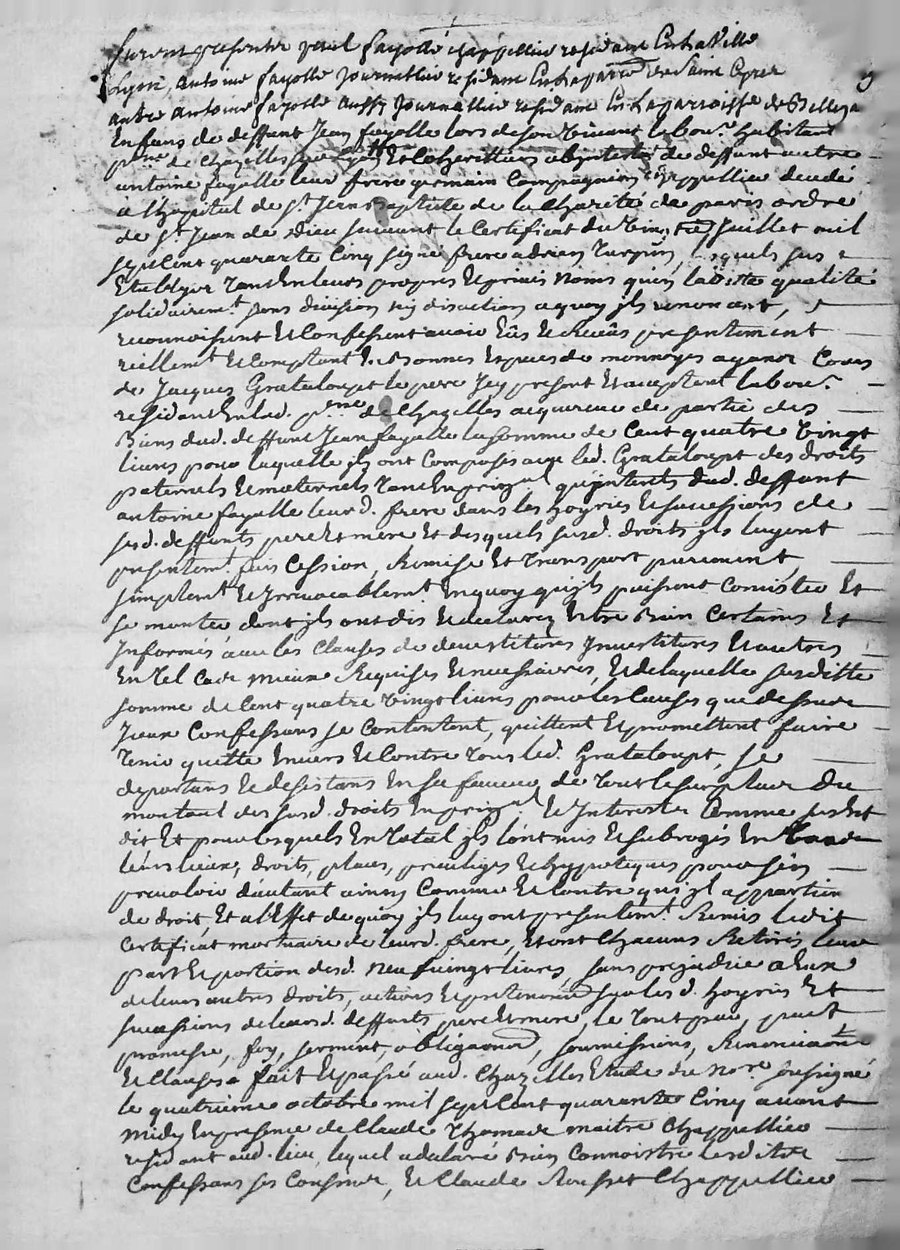 furent presents paul fayolle chappellier residant en la ville
Lyon, antoine fayolle journallier residant en la parr. de Saint
autre antoine fayolle aussy journallier residant en la parroisse de
Enfans de deffunt Jean fayolle lors de son vivant labour. habitant
de Chazelles Et Cohérittiers de deffunt autre
antoine fayolle leur frere germain Compagnion chappellier decedé
a l'hopital de St Jean Baptiste de la Charité de paris ordre
de St Jean de Dieu suivant le Certificat du juillet mil
sept Cent quarante Cinq signé frere adrien Turpin, lesquels
tant En leurs propres Et privés noms qu'en la ditte qualité
solidairemt sans division ny discution a quoy ils renoncent,
reconnoissent Et Confessent avoir Eüs Et Reçûs presentement
réellemt Et Comptant En Bonnes Especes de monnoyes ayant Cours
de Jacques Grataloupt le pere icy present Et acceptant labour.
residant En lad. de Chazelles acquereur de partie des
Biens dud. deffunt Jean fayolle la somme de Cent quatre vingt
livres pour laquelle ils ont Composés avec led. Grataloupt des droits
paternels Et maternels tant En principal qu'interets dud. deffunt
antoine fayolle leurd. frere dans les hoyries Et successions de
sesd. deffunts pere Et mere Et desquels susd. droits ils luy ont
presentemt fait Cession, Remise Et transport purement,
simplemt Et irrevocablemt En quoy qu'ils puissent Consister Et
se monter dont ils ont dis Et declarez Etre Bien Certains Et
informés, avec les Clauses de devestitures investitures Et autres
En tel Cas mieux Requises Et necessaires, Et de laquelle susditte
somme de Cent quatre vingt livres pour les Causes que dessus
iceux Confessans se Contentent, quittent Et promettent faire
tenir quitte Envers Et Contre tous led. Grataloupt, se
departans Et desistans En sa faveur de tout le surplus Du
montant des susd. droits En principal Et interets Comme sus Est
dit Et pour lesquels En total ils l'ont mis Et subrogés En
leurs lieux, droits, places, privileges Et hypoteques pour s'en
prevaloir d'autant ainsy Comme Et Contre qu'il appartien
de droit, Et a l'Effet de quoy ils luy ont presentemt Remis ledit
Certificat mortuaire de leurd. frere, Et ont Chacuns Retirés leur
part Et portion desd. neuf vingt livres, sans prejudice a Eux
de leurs autres droits, actions Et pretentions sur lesd. hoyries Et
successions de leursd. deffunts pere Et mere, le tout par, pact
promesse, foy, serment, obligaōns, soumissions, Renonciaōns
Et Clauses fait Et passé aud. Chazelles Etude du nore soussigné
le quatrieme octobre mil sept Cent quarante Cinq avant
midy En presence de Claude Thomas maitre Chappellier
residant aud. lieu, lequel a declaré Bien Connoistre lesdittes
Confessans Et Claude Rousset Chappellier